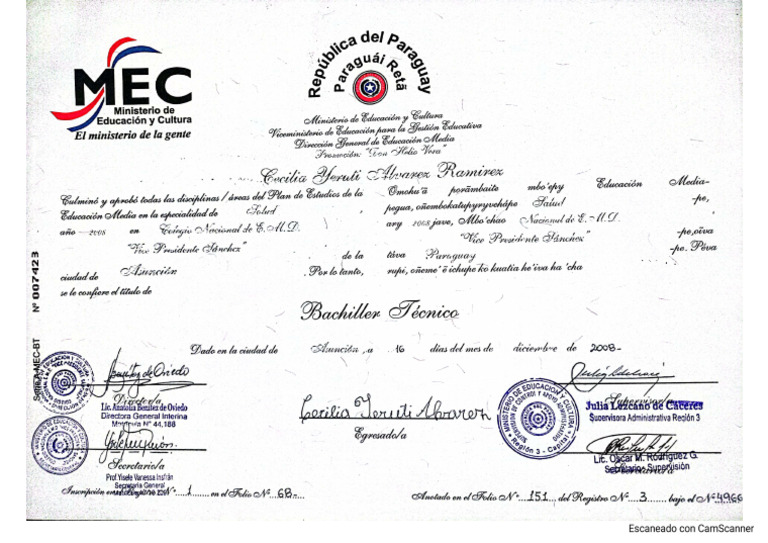 MEC
Ministerio de
Educación y Cultura
El ministerio de la gente
República del Paraguay
Paraguái Retã
Ministerio de Educación y Cultura
Viceministerio de Educación para la Gestión Educativa
Dirección General de Educación Media
Promoción: "Don Helio Vera"
Cecilia Yeruti Alvarez Ramirez
Culminó y aprobó todas las disciplinas / áreas del Plan de Estudios de la
Educación Media en la especialidad de Salud
año 2008 en Colegio Nacional de E.M.D.
"Vice Presidente Sánchez" de la
ciudad de Asunción . Por lo tanto,
se le confiere el título de
Omohu'ã porãmbaite mbo'epy Educación Media-
pegua, oñembokatapyryvchápe Salud -pe,
ary 2008 jave, Mbo'ehao Nacional de E.M.D. -pe, oĩva
"Vice Presidente Sánchez" -pe. Péva
táva Paraguay
rupi, oñeme'ẽ ichupe ko kuatia he'iva ha'cha
Bachiller Técnico
Nº 007423
Serie A-MEC-BT
Dado en la ciudad de Asunción, a 16 días del mes de diciembre de 2008-
Benítez de Oviedo
Director/a
Lic. Anatolia Benítez de Oviedo
Directora General Interina
Matrícula Nº 44.188
Secretario/a
Prof. Yisele Vanessa Insfrán
Secretaria General
Cecilia Yeruti Alvarez
Egresado/a
MINISTERIO DE EDUCACIÓN Y CULTURA
Región 3 - Capital
Supervisor/a
Julia Lezcano de Cáceres
Supervisora Administrativa Región 3
Lic. Oscar M. Rodríguez G.
Secretario Supervisión
Inscripción Nº 1 en el Folio Nº 68
Anotado en el Folio Nº 151, del Registro Nº 3 bajo el Nº 4966
Escaneado con CamScanner